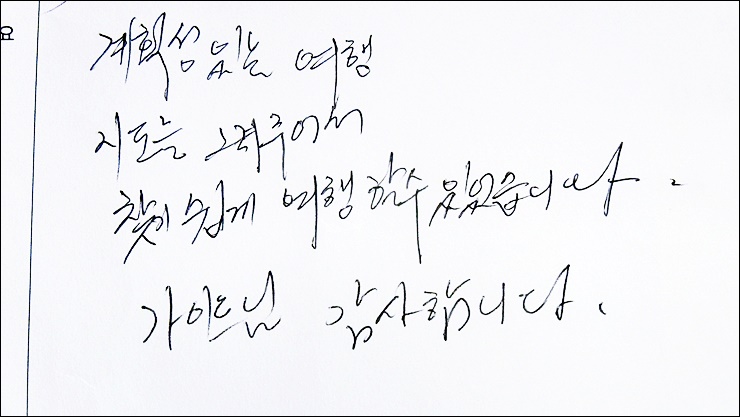 계획성 있는 여행
지도를 그려주어서
찾기 쉽게 여행 할수 있었습니다.
가이드님 감사합니다.